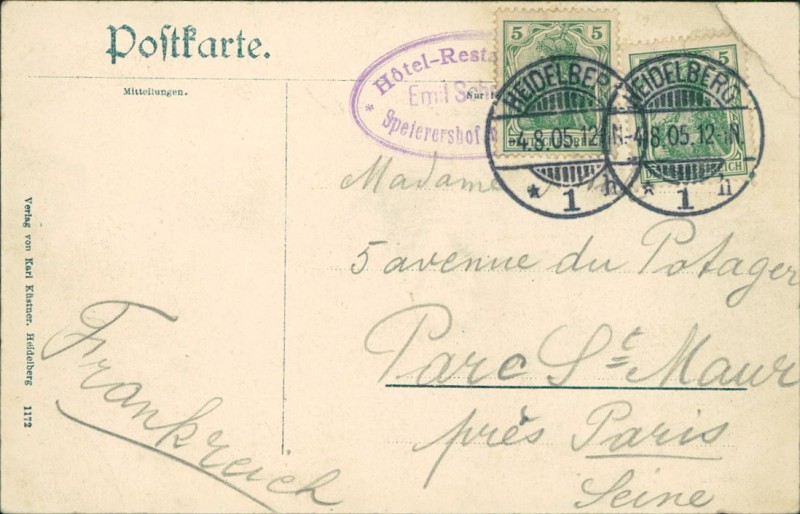 Postkarte.
Mitteilungen.
Nur für
Hôtel-Resta
Emil Sch
Speierershof
5
5
5
DEUTSCHES REICH
HEIDELBERG
4.8.05.12-1N.
* 1 h
HEIDELBERG
4.8.05.12-1N.
* 1 h
Madame
5 avenue du Potager
Parc St Maur
près Paris
Seine
Frankreich
Verlag von Karl Küstner. Heidelberg 1172